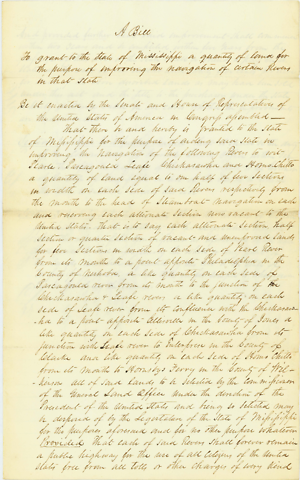 A Bill
To grant to the State of Mississippi a quantity of land for
the purpose of improving the navigation of certain Rivers
in that State
Be it enacted by the Senate and House of Representatives of
the United States of America in Congress assembled
That there be and hereby is granted to the State
of Mississippi for the purpose of aiding said State in
improving the navigation of the following Rivers to wit
Pearle Pascagoula Leafe Chickasawha and Homochitto
a quantity of land equal to one half of five Sections
in width on each side of said Rivers respectively from
the mouth to the head of Steam boat navigation on each
and reserving each alternate Section unreserved to the
United States. that is to say each alternate Section half
Section or quarter Section of vacant and unentered lands
for five Sections in width on each side of Pearl River
from its mouth to a point opposite Philadelphia in the
County of Neshoba, a like quantity on each side of
Pascagoula river from its mouth to the junction of the
Chickasawha & Leafe rivers a like quantity on each
side of Leafe river from its confluence with the Chickasaw-
ha to a point opposite Ellisville in the County of Jones a
like quantity on each side of Chickasawha from its
junction with Leafe river to Enterprise in the County of
Clarke and like quantity on each side of Homochitto
from its mouth to Ferry in the County of Wil-
kinson all of said lands to be selected by the Commissioner
of the General Land Office under the direction of the
President of the United States and being so selected may
be disposed of by the Legislature of the State of Mississippi
for the purpose aforesaid and for no other purpose whatsoever
Provided that each of said Rivers shall forever remain
a public highway for the use of all citizens of the United
States free from all tolls or other charges of every kind